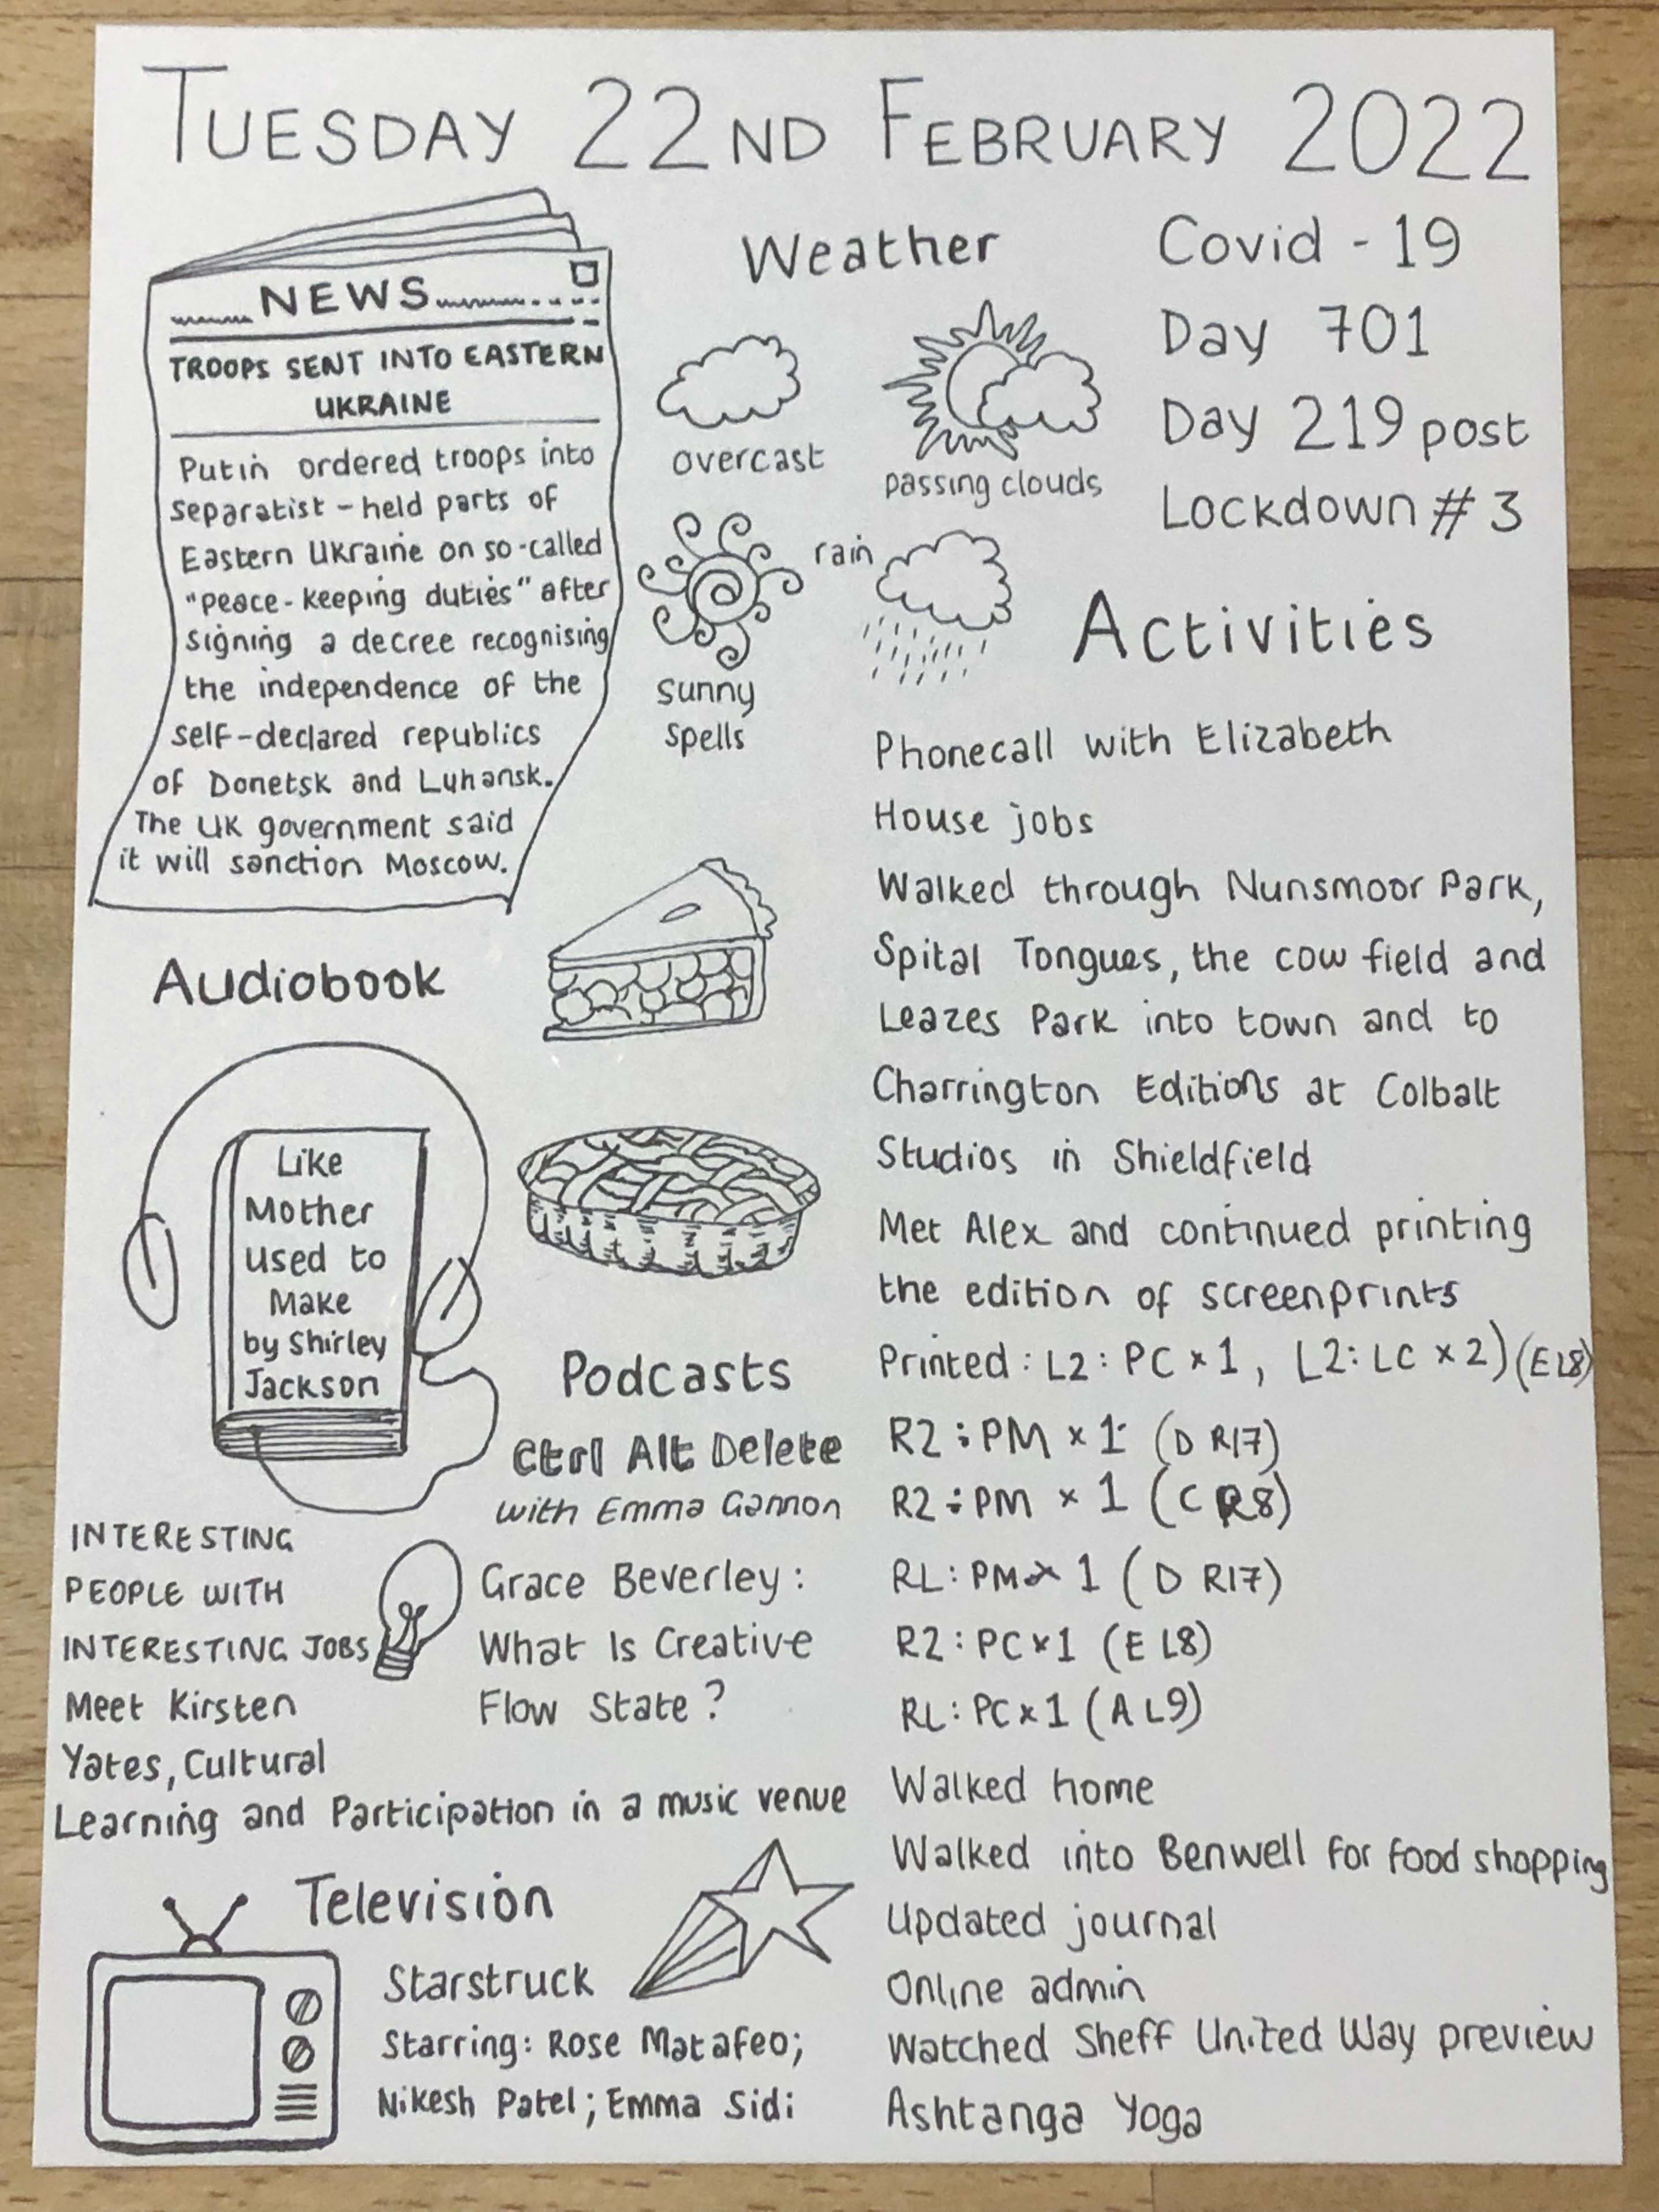 TUESDAY 22ND FEBRUARY 2022
NEWS
TROOPS SENT INTO EASTERN
UKRAINE
Putin ordered troops into
separatist-held parts of
Eastern Ukraine on so-called
"peace-keeping duties" after
signing a decree recognising
the independence of the
self-declared republics
of Donetsk and Luhansk.
The UK government said
it will sanction Moscow.
Weather
overcast
passing clouds
rain
sunny
spells
Covid-19
Day 701
Day 219 post
Lockdown #3
Audiobook
Like
Mother
used to
Make
by Shirley
Jackson
Podcasts
Ctrl Alt Delete
with Emma Gannon
Grace Beverley:
What Is Creative
Flow State?
INTERESTING
PEOPLE WITH
INTERESTING JOBS
Meet Kirsten
Yates, Cultural
Learning and Participation in a music venue
Television
Starstruck
Starring: Rose Matafeo;
Nikesh Patel; Emma Sidi
Activities
Phonecall with Elizabeth
House jobs
Walked through Nunsmoor Park,
Spital Tongues, the cow field and
Leazes Park into town and to
Charrington Editions at Colbalt
Studios in Shieldfield
Met Alex and continued printing
the edition of screenprints
Printed: L2: PC x 1, L2: LC x 2) (E L8)
R2: PM x 1 (D R17)
R2: PM x 1 (C R8)
RL: PM x 1 (D R17)
R2: PC x 1 (E L8)
RL: PC x 1 (A L9)
Walked home
Walked into Benwell for food shopping
Updated journal
Online admin
Watched Sheff United Way preview
Ashtanga Yoga